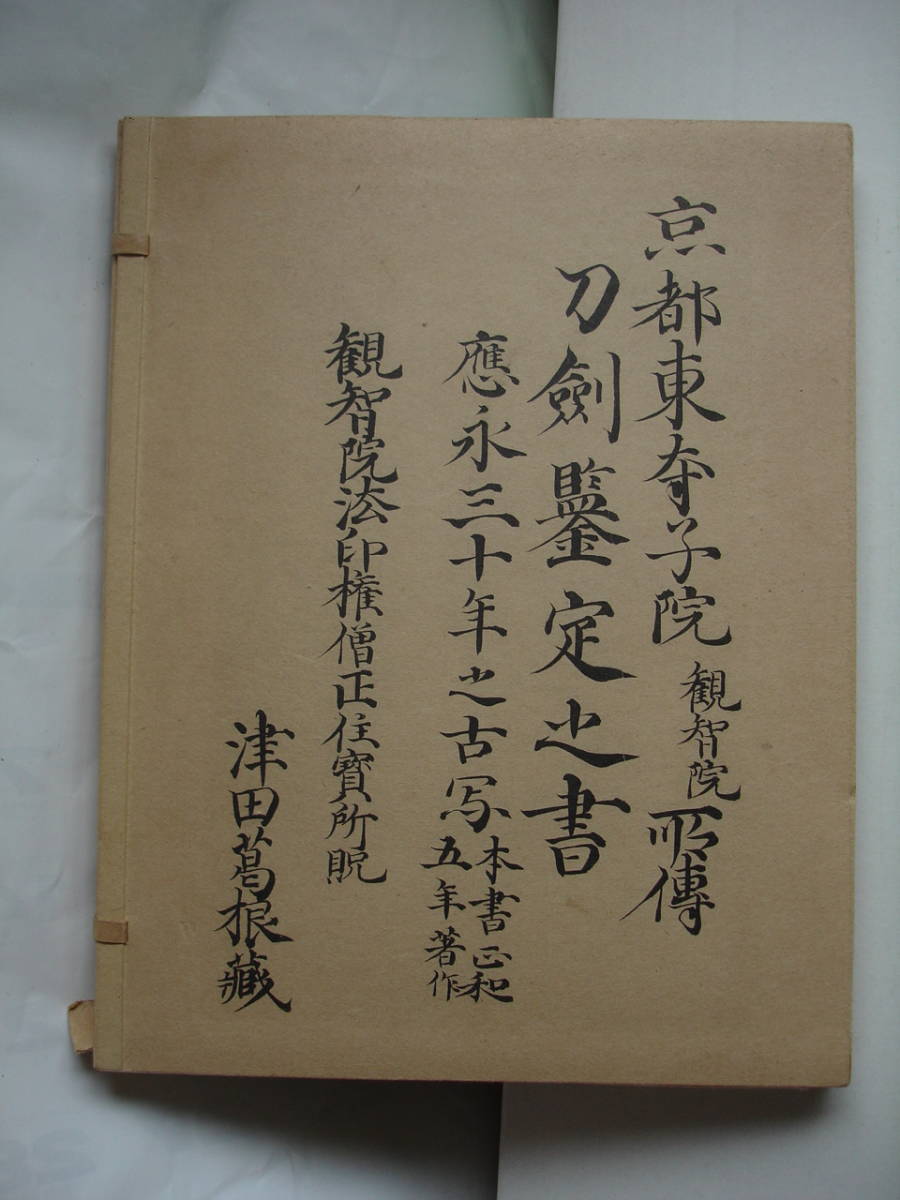 京都東寺子院 観智院 所傳
刀劍鑒定之書
應永三十年之古写 本書正和
五年著作
観智院法印権僧正住寶所貺
津田葛根藏